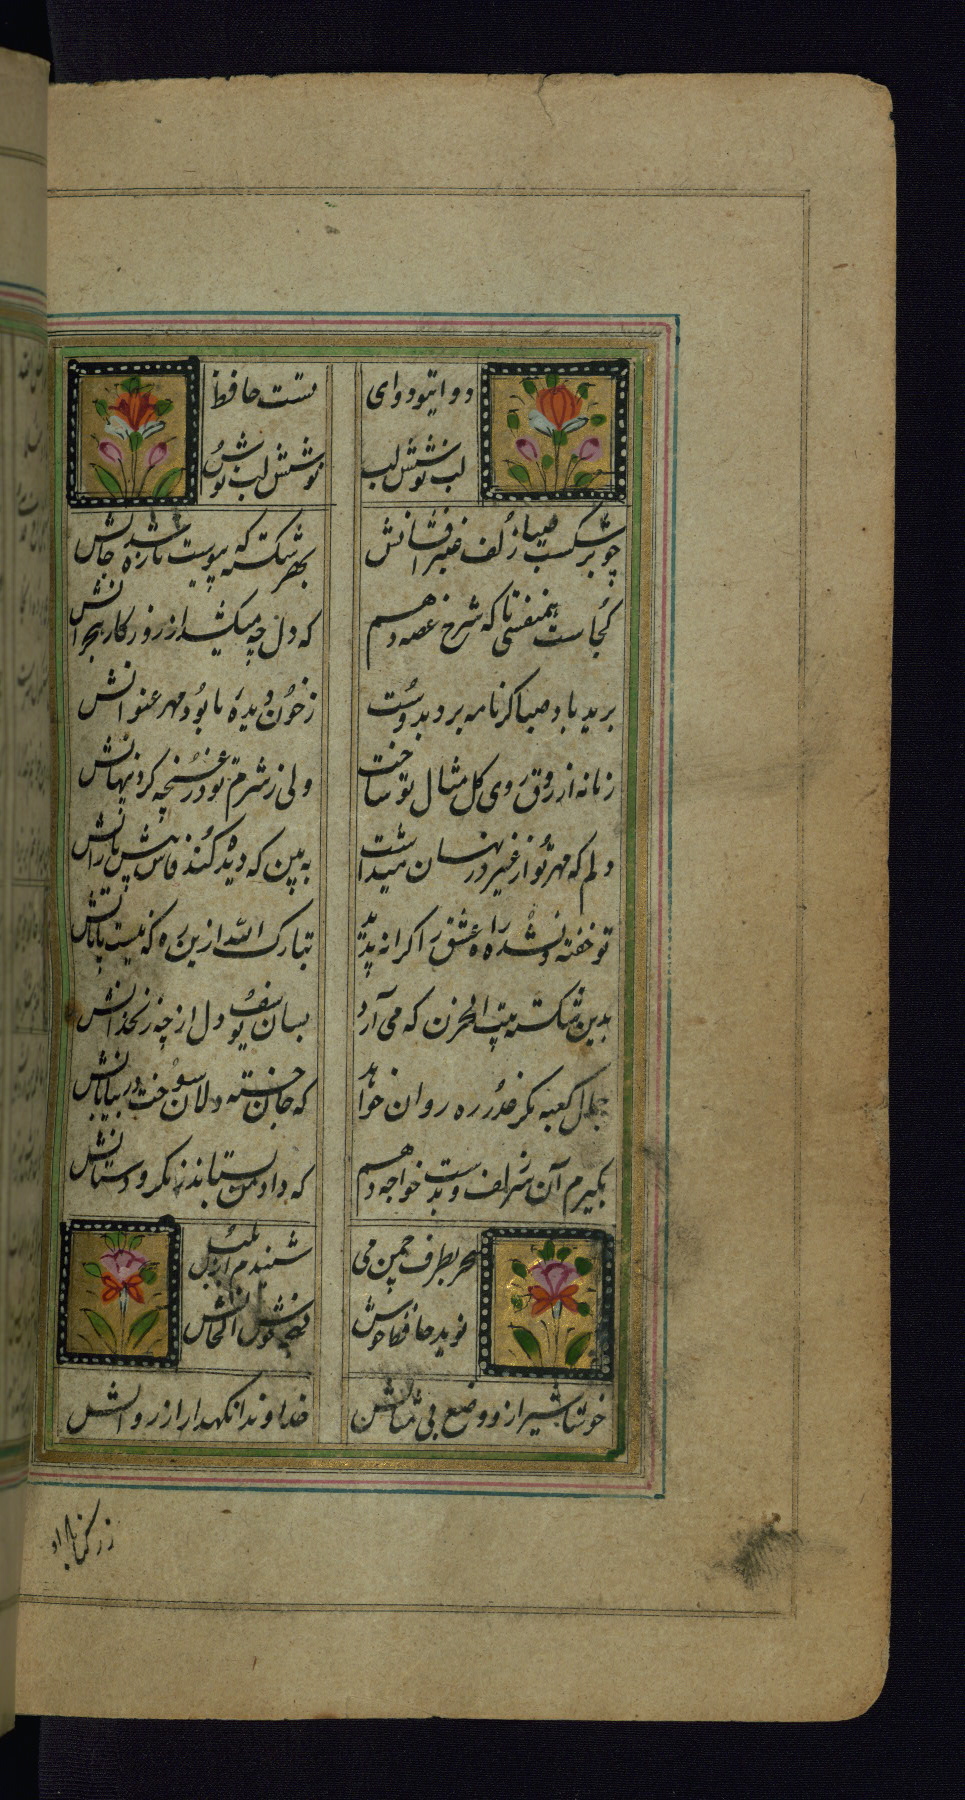 دوای تو دوای تست حافظ
لب نوشش لب نوشش لب نوش
چو برشکست صبا زلف عنبر افشانش
بهر شکسته که پیوست تازه شد جانش
کجاست همنفسی تا که شرح غصه دهم
که دل چه میکشد از روزکار هجرانش
برید باد صبا کر نامه برد بدوست
ز خون دیده ما بود مهر عنوانش
زمانه از ورق روی کل مثال تو ساخت
ولی ز شرم تو در غنچه کرد پنهانش
دلم که مهر تو از غیر در نهان میداشت
به بین که دیده کند فاش پیش یارانش
تو خفته و نشد راه عشق را کرانه پدید
تبارک الله ازین ره که نیست پایانش
بدین شکسته بیت الحزن که می آرد
بسان یوسف دل از چه زنخدانش
جمال کعبه مکر عذر ره روان خواهد
که جان خسته دلان سوخت در بیابانش
بکیرم آن سر زلف و بدست خواجه دهم
که داد من بستاند ز مکر و دستانش
سحر بطرف چمن می شنیدم از بلبل
نوید حافظ خوش لهجه خوش الحانش
خوشا شیراز و وضع بی مثالش
خداوندا نکهدار از زوالش
ز رکناباد